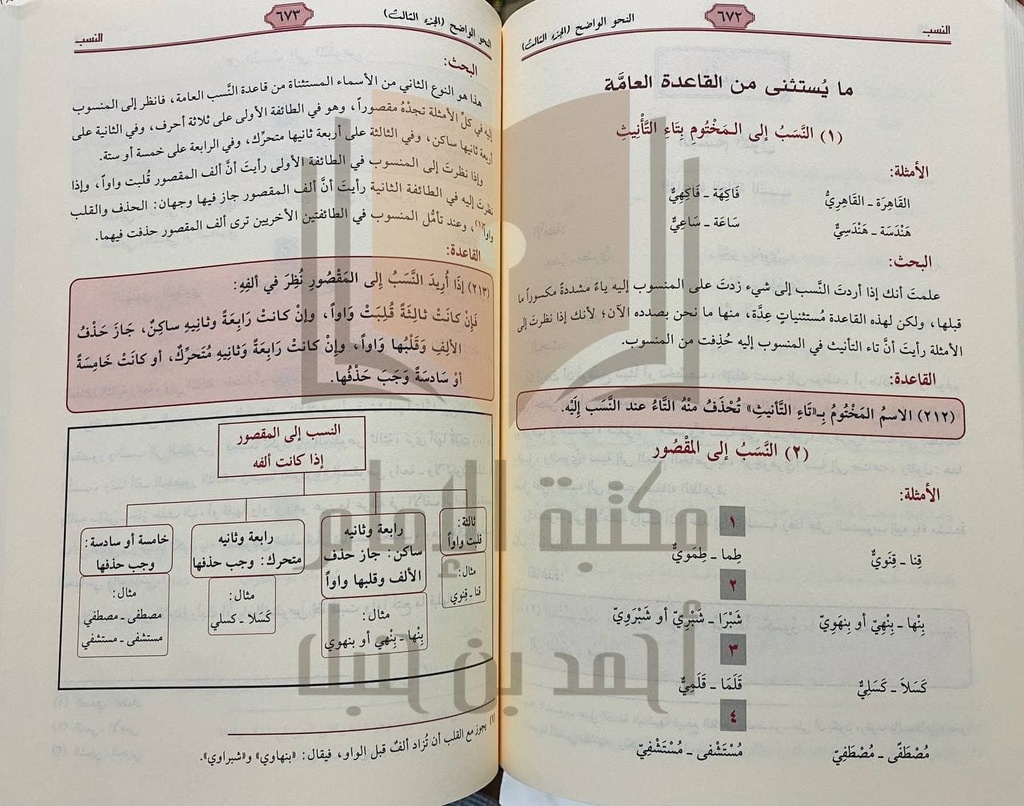 النسب
٦٧٢
النحو الواضح (الجزء الثالث)
ما يُستثنى من القاعدة العامَّة
(١) النَّسَبُ إلى الـمَخْتُومِ بِتَاءِ التَّأْنِيثِ
الأمثلة:
القَاهِرَة ـ القَاهِرِيُّ
فَاكِهَة ـ فَاكِهِيٌّ
هَنْدَسَة ـ هَنْدَسِيٌّ
سَاعَة ـ سَاعِيٌّ
البحث:
علمتَ أنك إذا أردتَ النَّسب إلى شيء زدتَ على المنسوب إليه ياءً مشددةً مكسوراً ما
قبلها، ولكن لهذه القاعدة مُستثنياتٍ عِدَّة، منها ما نحن بصدده الآن؛ لأنك إذا نظرتَ إلى
الأمثلة رأيتَ أنَّ تاء التأنيث في المنسوب إليه حُذِفت من المنسوب.
القاعدة:
(٢١٢) الاسمُ المَخْتُومُ بِـ«تَاءِ التَّأنيثِ» تُحْذَفُ مِنْهُ التَّاءُ عند النَّسَبِ إلَيْهِ.
(٢) النَّسَبُ إلى المَقْصُورِ
الأمثلة:
١
قِنا ـ قِنَوِيٌّ
طِما ـ طِمَوِيٌّ
٢
بِنْها ـ بِنْهِيّ أو بِنْهَوِيّ
شَبْرَا ـ شَبْرِيّ أو شَبْرَوِيّ
٣
كَسَلاَ ـ كَسَلِيٌّ
قَلَمَا ـ قَلَمِيٌّ
٤
مُصْطَفًى ـ مُصْطَفِيّ
مُسْتَشْفى ـ مُسْتَشْفِيّ
النحو الواضح (الجزء الثالث)
٦٧٣
النسب
البحث:
هذا هو النوع الثاني من الأسماء المستثناة من قاعدة النَّسب العامة، فانظر إلى المنسوب
إليه في كلِّ الأمثلة تجدْهُ مقصوراً، وهو في الطائفة الأولى على ثلاثة أحرف، وفي الثانية على
أربعة ثانيها ساكن، وفي الثالثة على أربعة ثانيها متحرِّك، وفي الرابعة على خمسة أو ستة.
وإذا نظرتَ إلى المنسوب في الطائفة الأولى رأيتَ أنَّ ألف المقصور قُلبت واواً، وإذا
نظرتَ إليه في الطائفة الثانية رأيتَ أنَّ ألف المقصور جاز فيها وجهان: الحذف والقلب
واواً(١)، وعند تأمُّل المنسوب في الطائفتين الأخريين ترى ألف المقصور حذفت فيهما.
القاعدة:
(٢١٣) إذا أُريدَ النَّسَبُ إلى المَقْصُورِ نُظِرَ في ألفِهِ:
فَإنْ كانَتْ ثالِثَةً قُلِبَتْ وَاواً، وإنْ كانتْ رَابِعَةً وثانيهِ ساكِنٌ، جَازَ حَذْفُ
الألِفِ وَقَلْبُها وَاواً، وإنْ كانتْ رَابِعَةً وَثانيهِ مُتَحرِّكٌ، أو كانَتْ خَامِسَةً
أوْ سَادسَةً وَجَبَ حَذْفُها.
النسب إلى المقصور
إذا كانت ألفه
ثالثة:
قلبت واواً
مثال:
قنا ـ قِنوي
رابعة وثانيه
ساكن: جاز حذف
الألف وقلبها واواً
مثال:
بِنْها ـ بِنْهي أو بنهوي
رابعة وثانيه
متحرك: وجب حذفها
مثال:
كَسَلا ـ كسلي
خامسة أو سادسة:
وجب حذفها
مثال:
مصطفى ـ مصطفي
مستشفى ـ مستشفي
(١) يجوز مع القلب أن تُزاد ألفٌ قبل الواو، فيقال: «بنهاوي» و«شبراوي».
مكتبة الإمام
أحمد بن حنبل